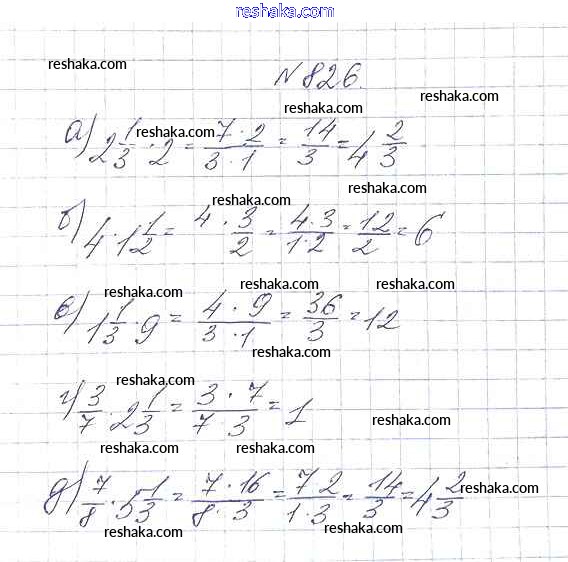 reshaka.com
reshaka.com
reshaka.com
№ 826.
reshaka.com
reshaka.com
а) 2 1/3 · 2 = 7·2/3·1 = 14/3 = 4 2/3
reshaka.com
reshaka.com
reshaka.com
б) 4 · 1 1/2 = 4 · 3/2 = 4·3/1·2 = 12/2 = 6
reshaka.com
reshaka.com
reshaka.com
в) 1 1/3 · 9 = 4·9/3·1 = 36/3 = 12
reshaka.com
reshaka.com
г) 3/7 · 2 1/3 = 3·7/7 3 = 1
reshaka.com
reshaka.com
reshaka.com
reshaka.com
д) 7/8 · 5 1/3 = 7·16/8·3 = 7 2/1·3 = 14/3 = 4 2/3
reshaka.com
reshaka.com